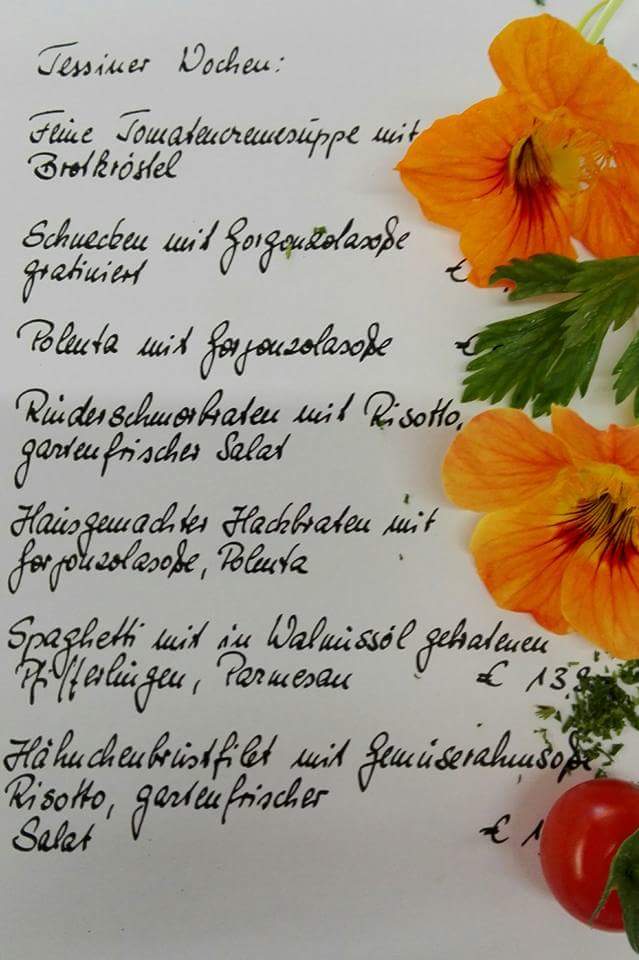 Tessiner Wochen:
Feine Tomatencremesuppe mit
Brotkröstel
Schnecken mit Gorgonzolasoße
gratiniert €
Polenta mit Gorgonzolasoße €
Rinderschmorbraten mit Risotto,
gartenfrischer Salat
Hausgemachter Hackbraten mit
Gorgonzolasoße, Polenta
Spaghetti mit in Walnussöl gebratenen
Pfifferlingen, Parmesan € 13,
Hähnchenbrustfilet mit Gemüserahmsoße
Risotto, gartenfrischer
Salat € 1